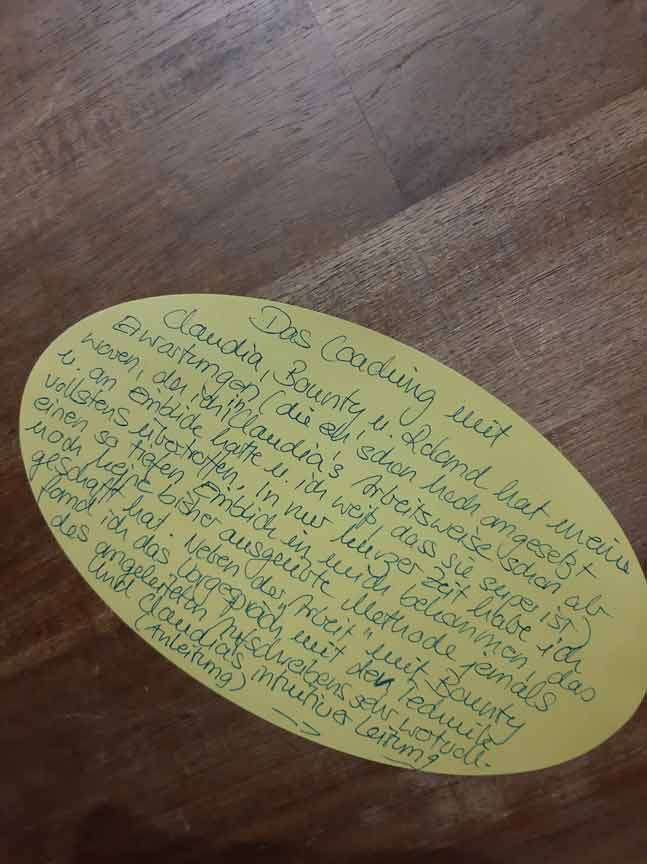 Das Coaching mit
Claudia, Bounty u. hat meine
Erwartungen (die eh schon hoch angesetzt
waren, da ich in Claudia's Arbeitsweise schon ab
u. an Einblick hatte u. ich weiß, dass sie super ist)
vollstens übertroffen. In nur kurzer Zeit habe ich
einen so tiefen Einblick in mich bekommen, das
noch keine bisher ausgeübte Methode jemals
geschafft hat. Neben der "Arbeit" mit Bounty
fand ich das Vorgespräch mit den Technik
des angeleiteten Aufschreibens sehr wertvoll
und Claudia's intuitiver Leitung
(Anleitung)